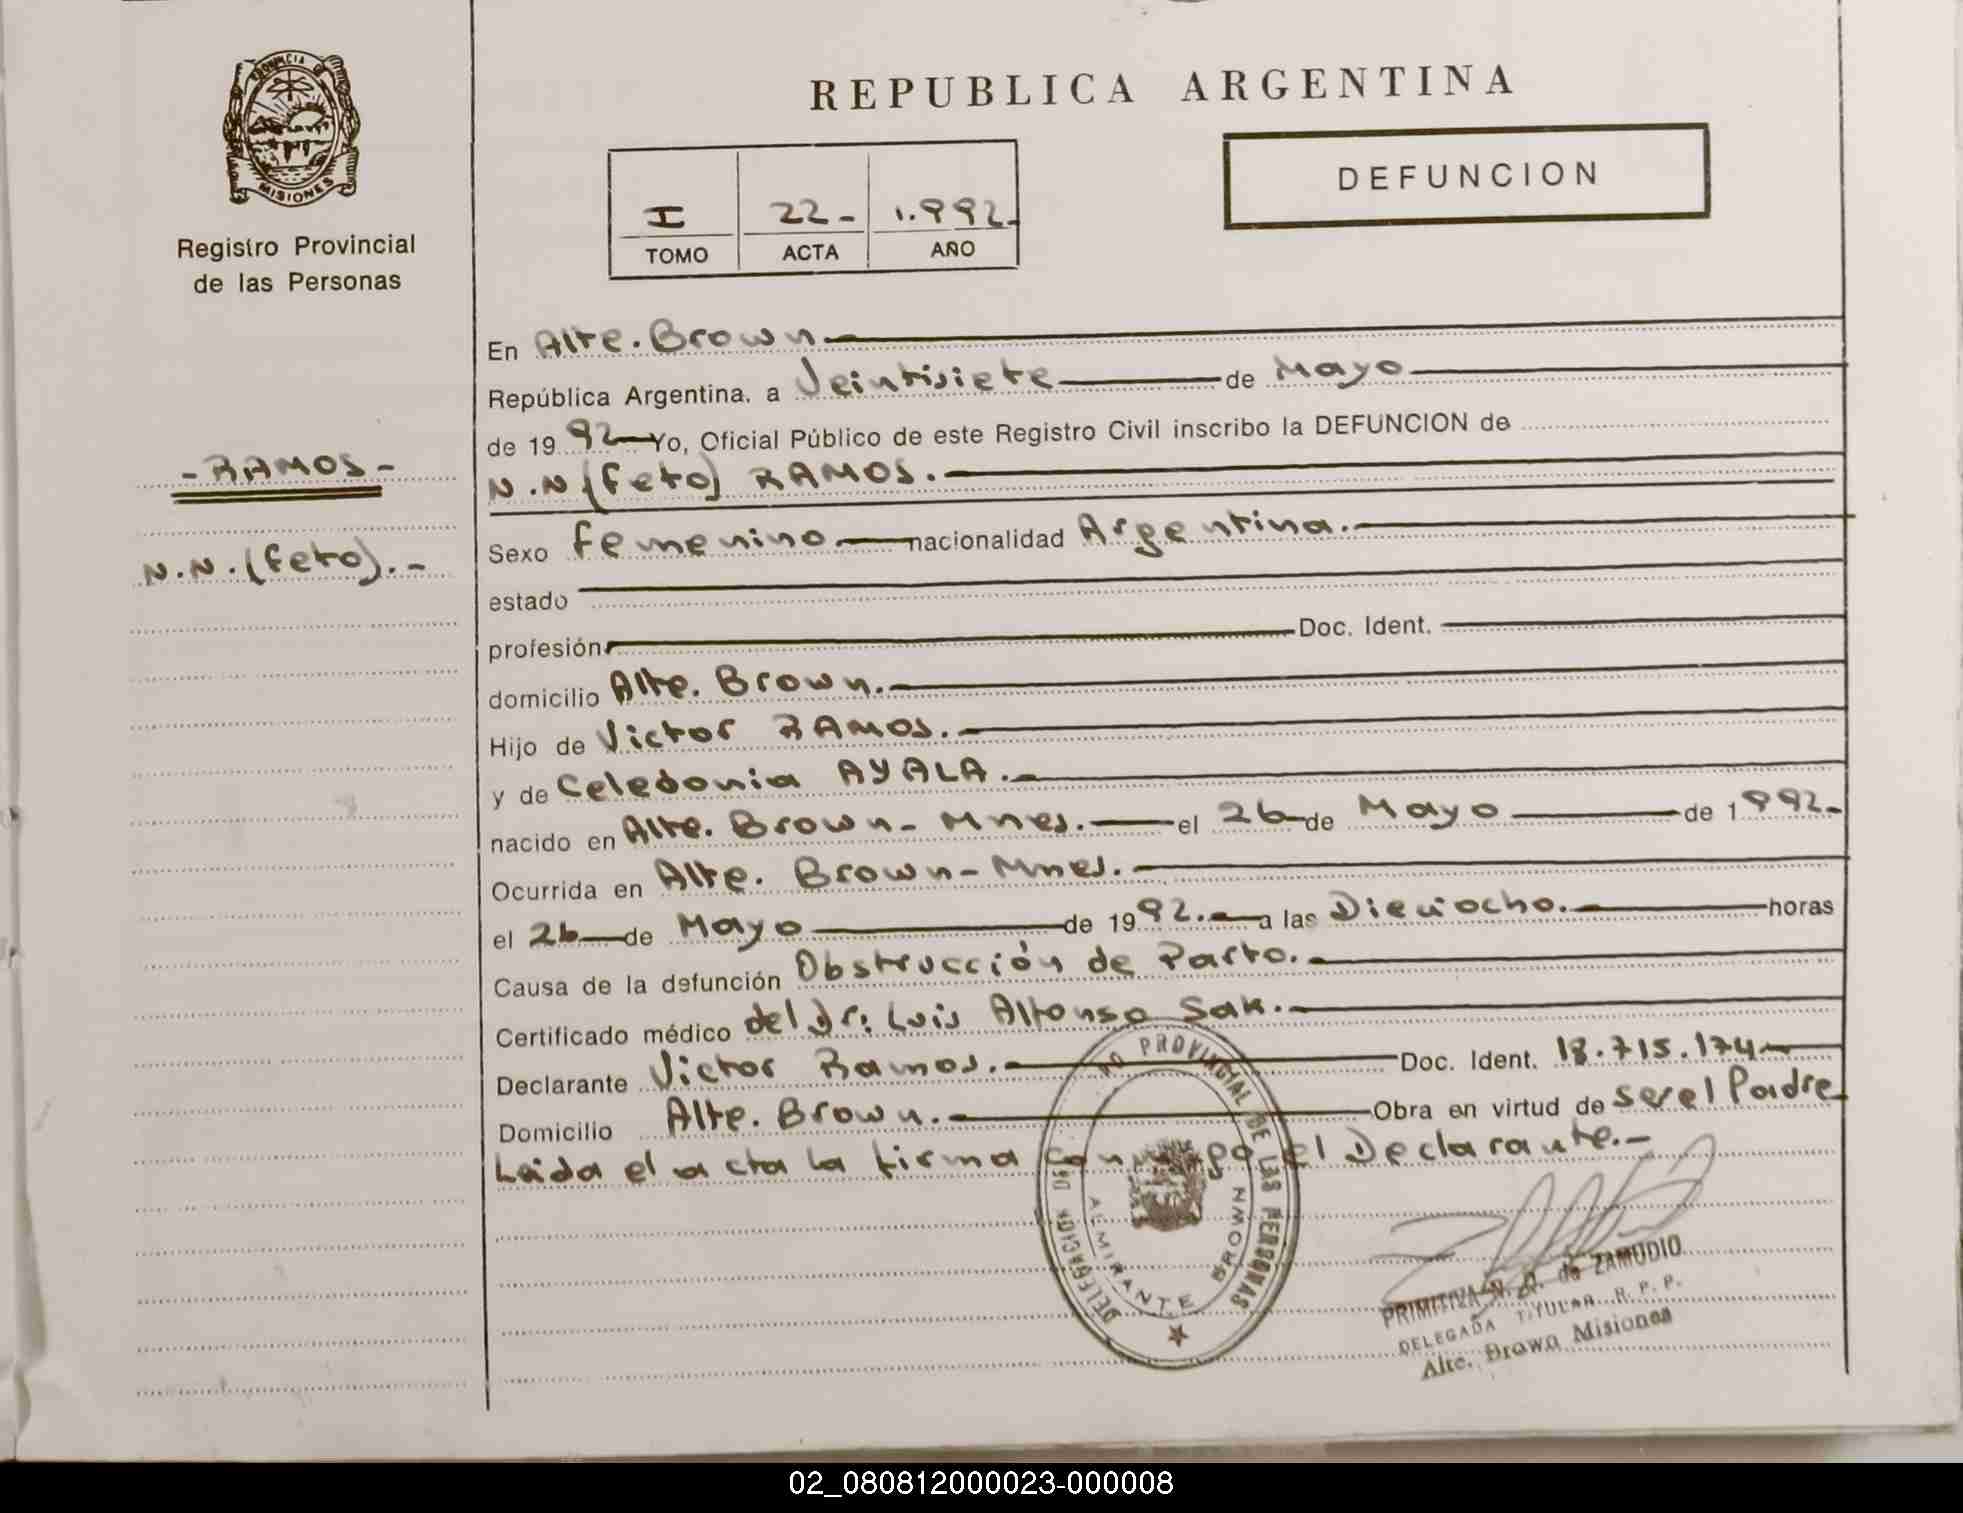 PROVINCIA DE
MISIONES
Registro Provincial
de las Personas
- RAMOS -
N.N. (feto). -
REPUBLICA ARGENTINA
I 22- 1.992-
TOMO ACTA AÑO
DEFUNCION
En Alte. Brown
República Argentina, a Veintisiete de Mayo
de 1992 Yo, Oficial Público de este Registro Civil inscribo la DEFUNCION de
N.N (feto) RAMOS.
Sexo femenino nacionalidad Argentina.
estado
profesión Doc. Ident.
domicilio Alte. Brown.
Hijo de Victor RAMOS.
y de Celedonia AYALA.
nacido en Alte. Brown- Mnes. el 26 de Mayo de 1992-
Ocurrida en Alte. Brown- Mnes.
el 26 de Mayo de 1992. a las Dieciocho. horas
Causa de la defunción Obstrucción de Parto.
Certificado médico del Dr: Luis Alfonso Sak.
Declarante Victor Ramos. Doc. Ident. 18.715.174
Domicilio Alte. Brown. Obra en virtud de ser el Padre
Leida el acta la firma conmigo el Declarante.-
DELEGACION DEL PROVINCIAL DE LAS PERSONAS
ALMIRANTE BROWN
PRIMITIVA de ZAMUDIO
DELEGADA TITULAR R. P. P.
Alte. Brown Misiones
02_080812000023-000008